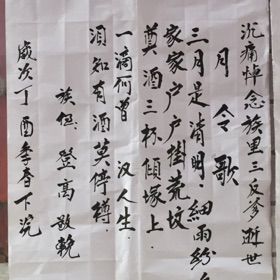 沉痛悼念族里三反爹逝世
月令歌
三月是清明·細雨紛
家家户户掛荒坟
奠酒三杯傾塚上·
一滴何曾 汉人生·
須知有酒莫停樽·
族侄 登高敬輓
歲次丁酉季春下浣